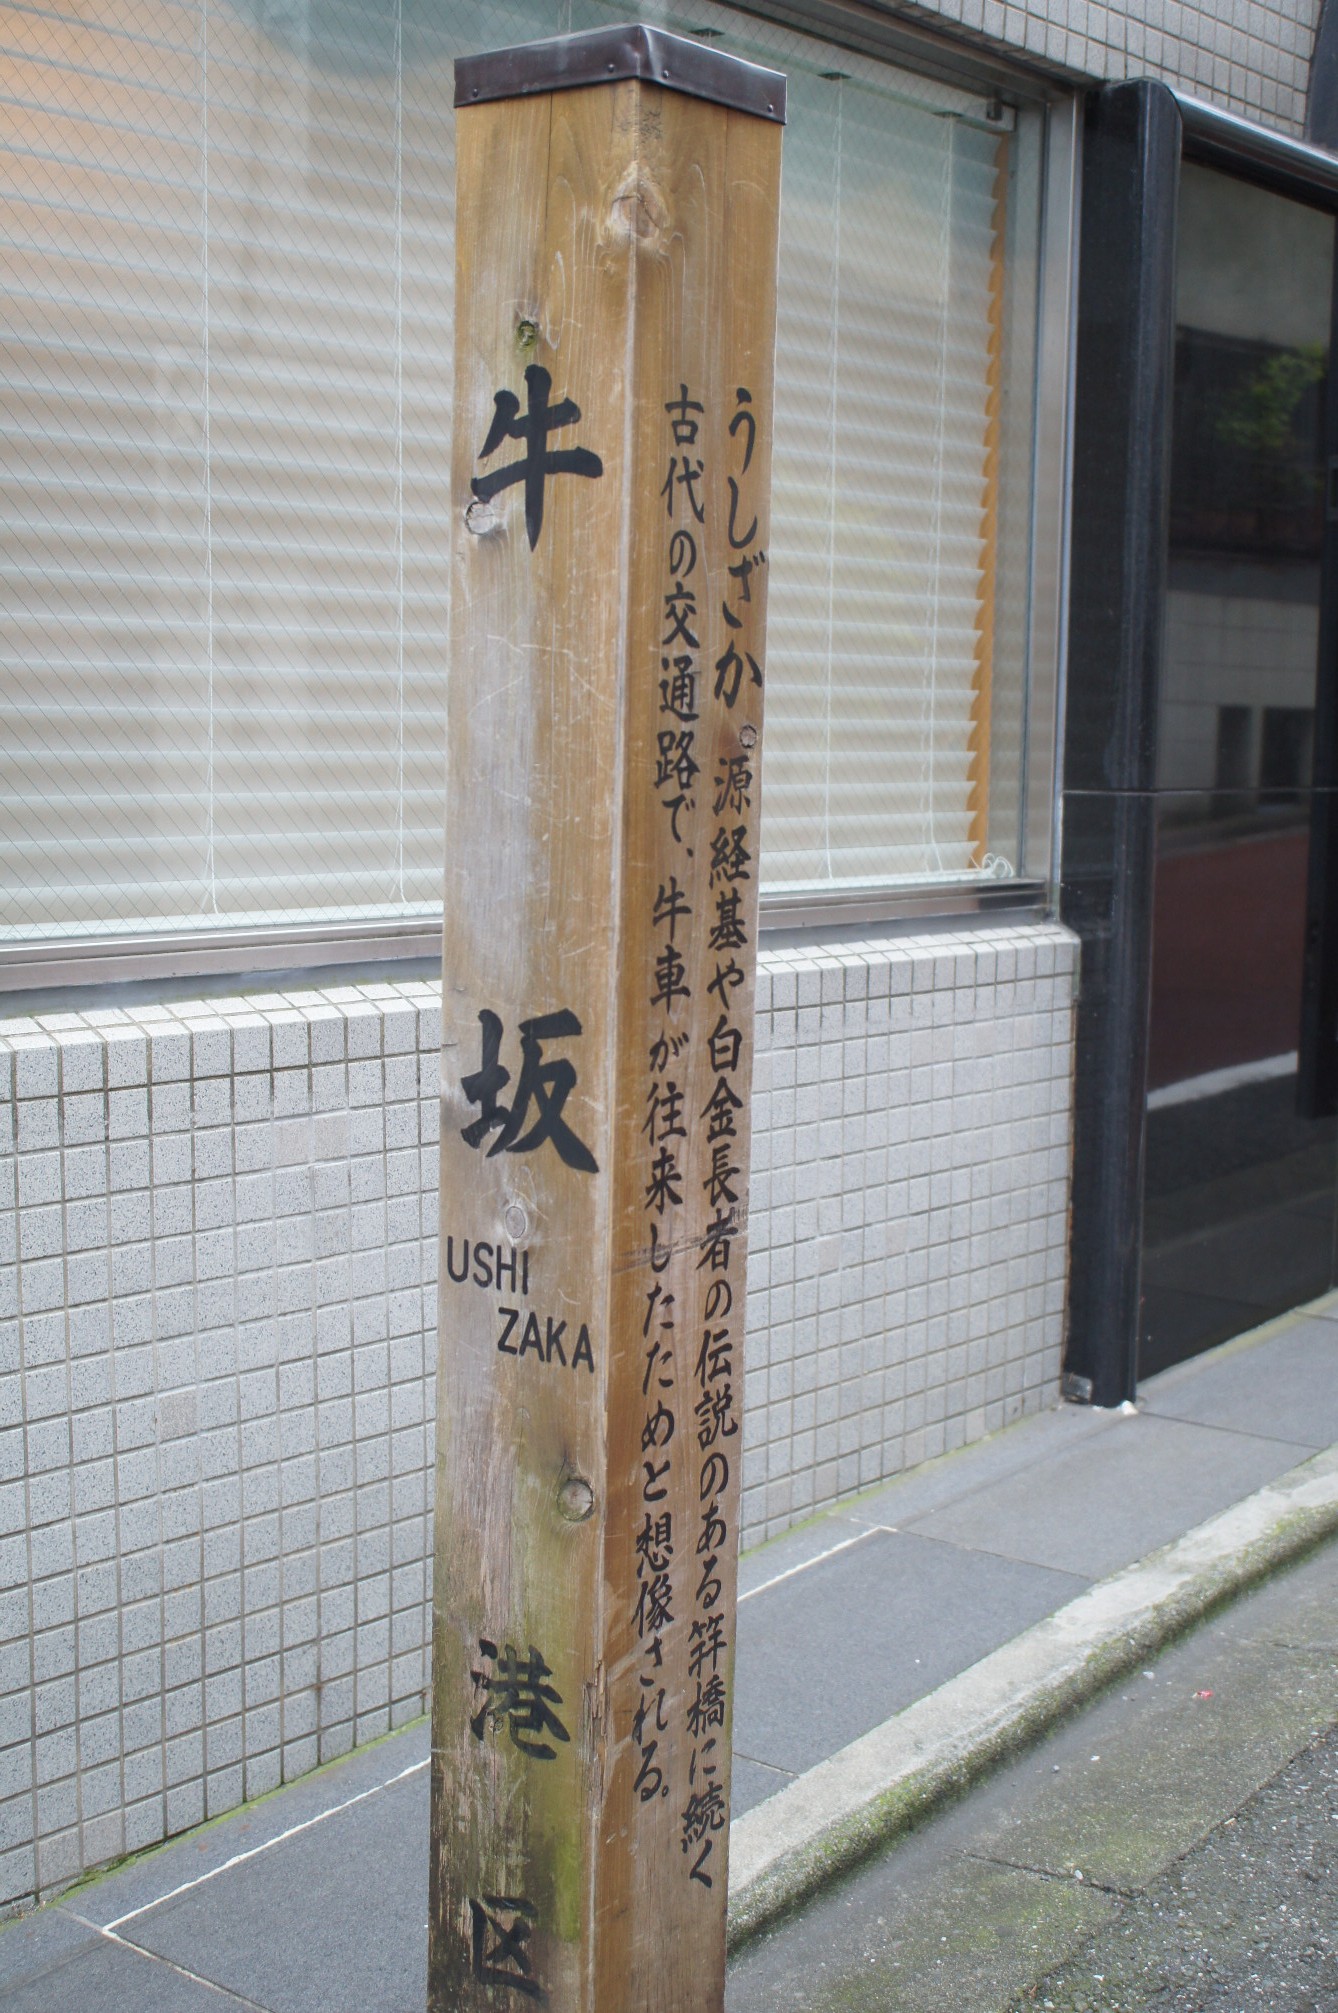 牛坂
USHI
ZAKA
港区
うしざか 源経基や白金長者の伝説のある笄橋に続く
古代の交通路で、牛車が往来したためと想像される。